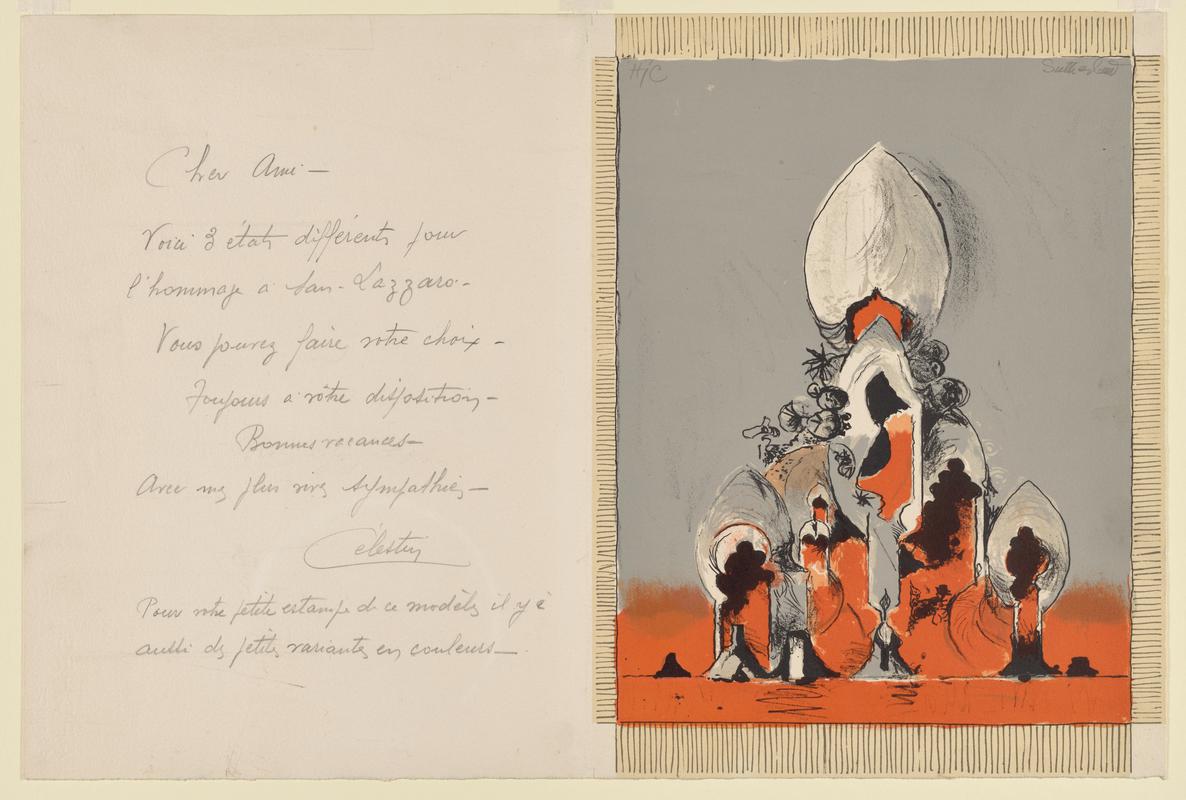 Cher Ami —
Voici 3 états différents pour
l'hommage a San-Lazzaro. -
Vous pouvez faire votre choix -
Toujours a vôtre disposition, -
Bonnes vacances -
Avec mes plus vives sympathies, -
Célestin
Pour votre petite estampe de ce modèle, il y è
aussi des petites variantes en couleurs —
H/C
Sutherland